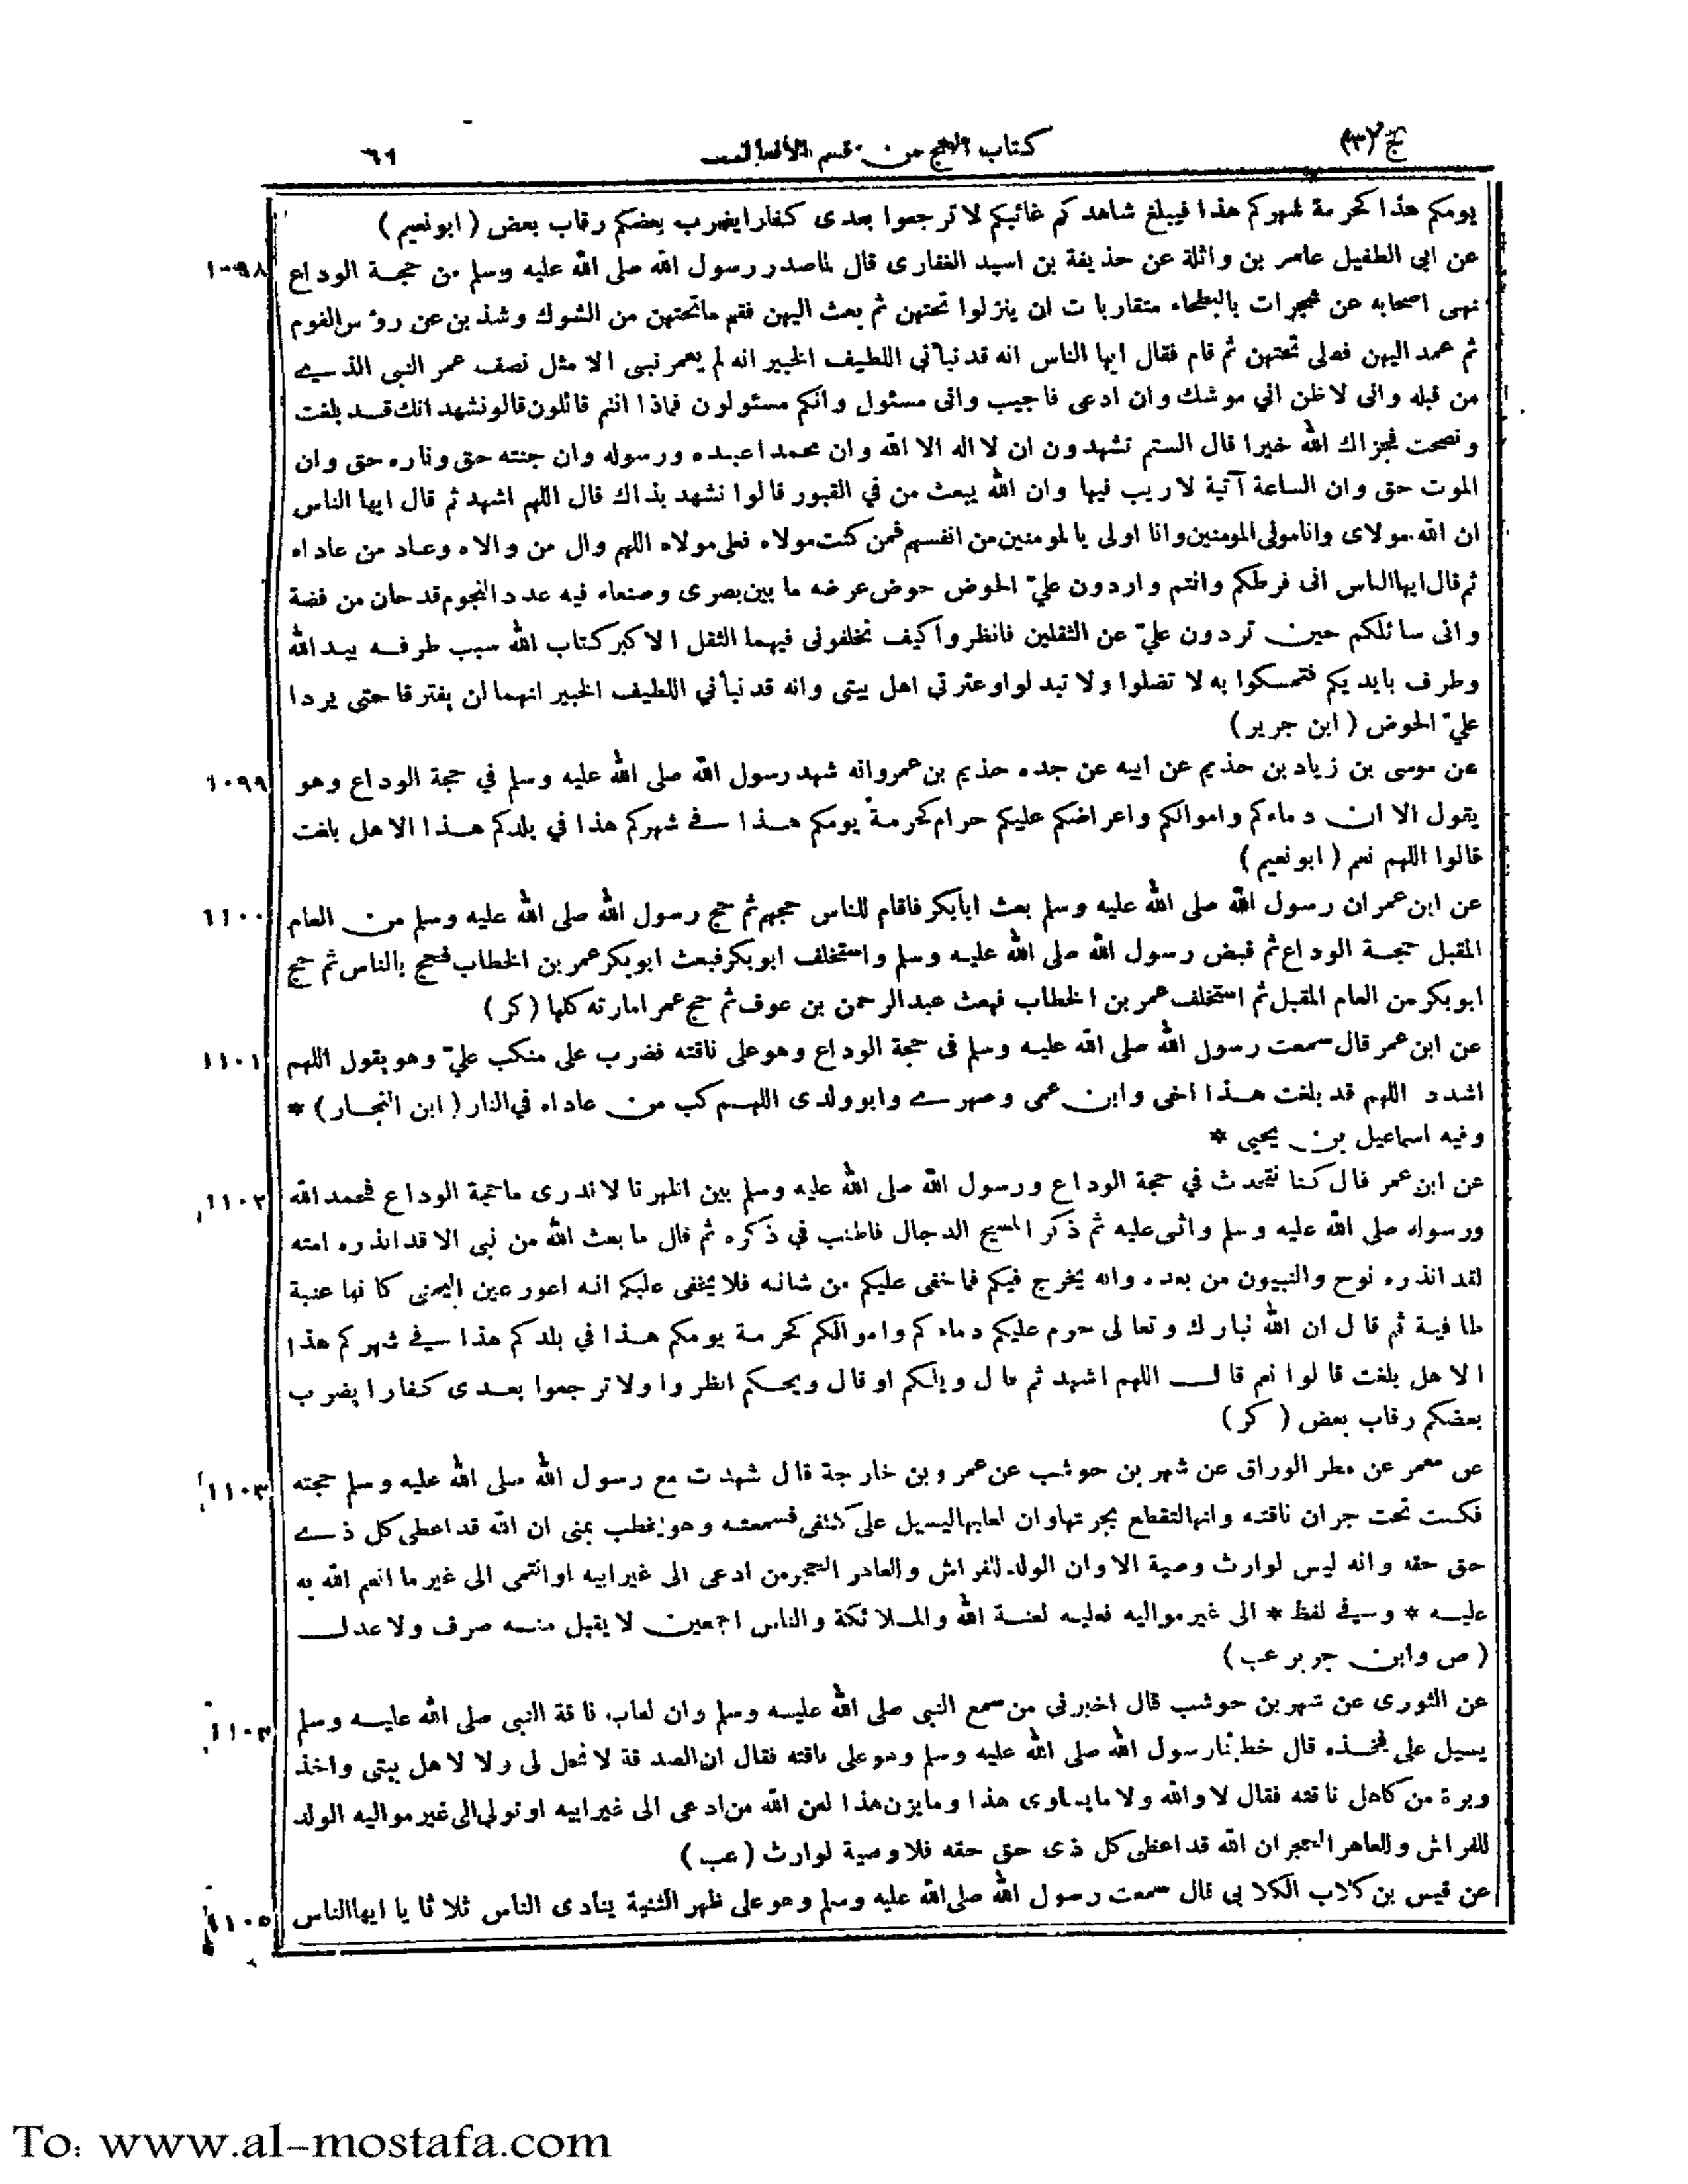 ج (٣) كتاب الحج من قسم الأفعال ٦١
يومكم هذا كحرمة شهركم هذا فيبلغ شاهدكم غائبكم لا ترجعوا بعدى كفارا يضرب بعضكم رقاب بعض ( ابو نعيم )
عن ابى الطفيل عامر بن واثلة عن حذيفة بن اسيد الغفارى قال لما صدر رسول الله صلى الله عليه وسلم من حجة الوداع ١٠٩٨
نهى اصحابه عن شجرات بالبطحاء متقاربات ان ينزلوا تحتهن ثم بعث اليهن فقم ماتحتهن من الشوك وشذبن عن رؤس القوم
ثم عمد اليهن فصلى تحتهن ثم قام فقال ايها الناس انه قد نبأنى اللطيف الخبير انه لم يعمر نبى الا مثل نصف عمر النبى الذى
من قبله وانى لاظن انى موشك وان ادعى فاجيب وانى مسئول وانكم مسئولون فماذا انتم قائلون قالو نشهد انك قد بلغت
ونصحت فجزاك الله خيرا قال الستم تشهدون ان لا اله الا الله وان محمدا عبده ورسوله وان جنته حق وناره حق وان
الموت حق وان الساعة آتية لا ريب فيها وان الله يبعث من في القبور قالوا نشهد بذاك قال اللهم اشهد ثم قال ايها الناس
ان الله مولاى وانا مولى المومنين وانا اولى بالمومنين من انفسهم فمن كنت مولاه فعلى مولاه اللهم وال من والاه وعاد من عاداه
ثم قال ايها الناس انى فرطكم وانتم واردون علي الحوض حوض عرضه ما بين بصرى وصنعاء فيه عدد النجوم قدحان من فضة
وانى سائلكم حين تردون علي عن الثقلين فانظروا كيف تخلفونى فيهما الثقل الاكبر كتاب الله سبب طرفه بيد الله
وطرف بايديكم فتمسكوا به لا تضلوا ولا تبدلوا وعترتي اهل بيتى وانه قد نبأني اللطيف الخبير انهما لن يفترقا حتى يردا
علي الحوض ( ابن جرير )
عن موسى بن زياد بن حذيم عن ابيه عن جده حذيم بن عمرو انه شهد رسول الله صلى الله عليه وسلم في حجة الوداع وهو ١٠٩٩
يقول الا ان دماءكم واموالكم واعراضكم عليكم حرام كحرمة يومكم هذا في شهركم هذا في بلدكم هذا الا هل بلغت
قالوا اللهم نعم ( ابو نعيم )
عن ابن عمر ان رسول الله صلى الله عليه وسلم بعث ابابكر فاقام للناس حجهم ثم حج رسول الله صلى الله عليه وسلم من العام ١١٠٠
المقبل حجة الوداع ثم قبض رسول الله صلى الله عليه وسلم واستخلف ابوبكر فبعث ابوبكر عمر بن الخطاب فحج بالناس ثم حج
ابوبكر من العام المقبل ثم استخلف عمر بن الخطاب فبعث عبدالرحمن بن عوف ثم حج عمر امارته كلها ( كر )
عن ابن عمر قال سمعت رسول الله صلى الله عليه وسلم فى حجة الوداع وهو على ناقته فضرب على منكب علي وهو يقول اللهم ١١٠١
اشدد اللهم قد بلغت هذا اخى وابن عمى وصهرى وابو ولدى اللهم كب من عاداه في النار ( ابن النجار ) *
وفيه اسماعيل بن يحيى *
عن ابن عمر قال كنا نتحدث في حجة الوداع ورسول الله صلى الله عليه وسلم بين اظهرنا لا ندرى ما حجة الوداع فحمد الله ١١٠٢
ورسوله صلى الله عليه وسلم واثنى عليه ثم ذكر المسيح الدجال فاطنب في ذكره ثم قال ما بعث الله من نبى الا قد انذره امته
لقد انذره نوح والنبيون من بعده وانه يخرج فيكم فما خفى عليكم من شانه فلا يخفى عليكم انه اعور عين اليمنى كانها عنبة
طافية ثم قال ان الله تبارك وتعالى حرم عليكم دماءكم واموالكم كحرمة يومكم هذا في بلدكم هذا في شهركم هذا
الا هل بلغت قالوا نعم قال اللهم اشهد ثم قال ويلكم او قال ويحكم انظروا ولا ترجعوا بعدى كفارا يضرب
بعضكم رقاب بعض ( كر )
عن معمر عن مطر الوراق عن شهر بن حوشب عن عمرو بن خارجة قال شهدت مع رسول الله صلى الله عليه وسلم حجته ١١٠٣
فكنت تحت جران ناقته وانها لتقطع بجرتها وان لعابها ليسيل على كتفى فسمعته وهو يخطب بمنى ان الله قد اعطى كل ذى
حق حقه وانه ليس لوارث وصية الا وان الولد للفراش وللعاهر الحجر من ادعى الى غير ابيه او انتمى الى غير ما انعم الله به
عليه * وفي لفظ * الى غير مواليه فعليه لعنة الله والملائكة والناس اجمعين لا يقبل منه صرف ولا عدل
( ص وابن جرير عب )
عن الثورى عن شهر بن حوشب قال اخبرنى من سمع النبى صلى الله عليه وسلم وان لعاب ناقة النبى صلى الله عليه وسلم ١١٠٤
يسيل على فخذه قال خطبنا رسول الله صلى الله عليه وسلم وهو على ناقته فقال ان الصدقة لا تحل لى ولا لاهل بيتى واخذ
وبرة من كاهل ناقته فقال لا والله ولا ما يساوى هذا وما يزن هذا لعن الله من ادعى الى غير ابيه او تولى الى غير مواليه الولد
للفراش وللعاهر الحجر ان الله قد اعطى كل ذى حق حقه فلا وصية لوارث ( عب )
عن قيس بن كلاب الكلابى قال سمعت رسول الله صلى الله عليه وسلم وهو على ظهر الثنية ينادى الناس ثلاثا يا ايها الناس ١١٠٥
To: www.al-mostafa.com